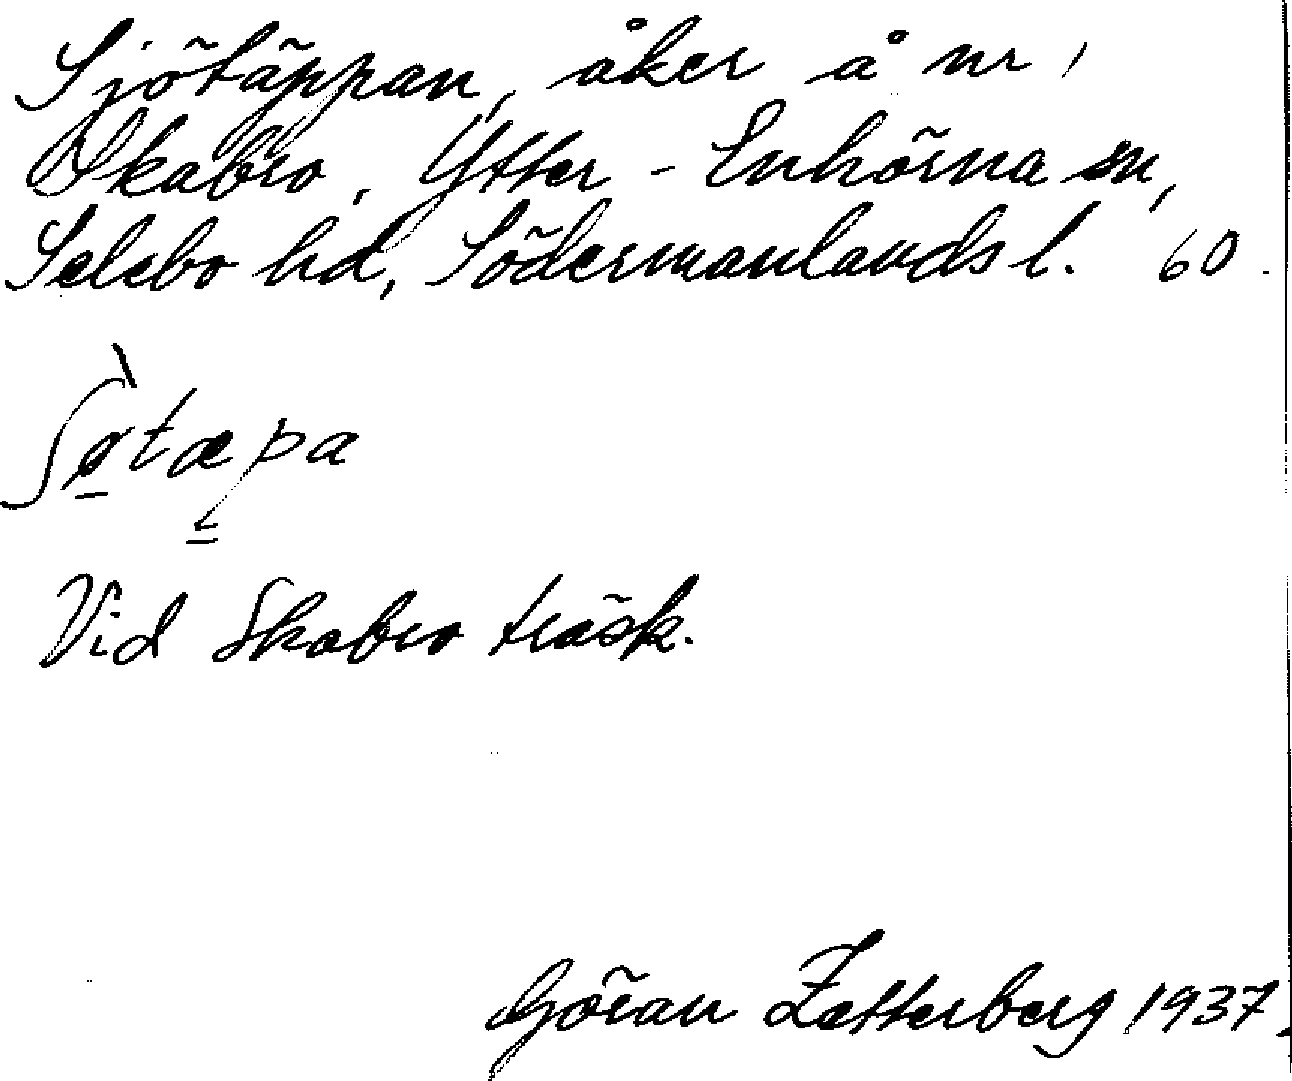 Sjötäppan, åker å nr 1
Skabro, Ytter-Enhörna sn,
Selebo hd, Södermanlands l. 60.
ʃø̠̀tæp̳a
Vid Skabro träsk.
Göran Zetterberg 1937.